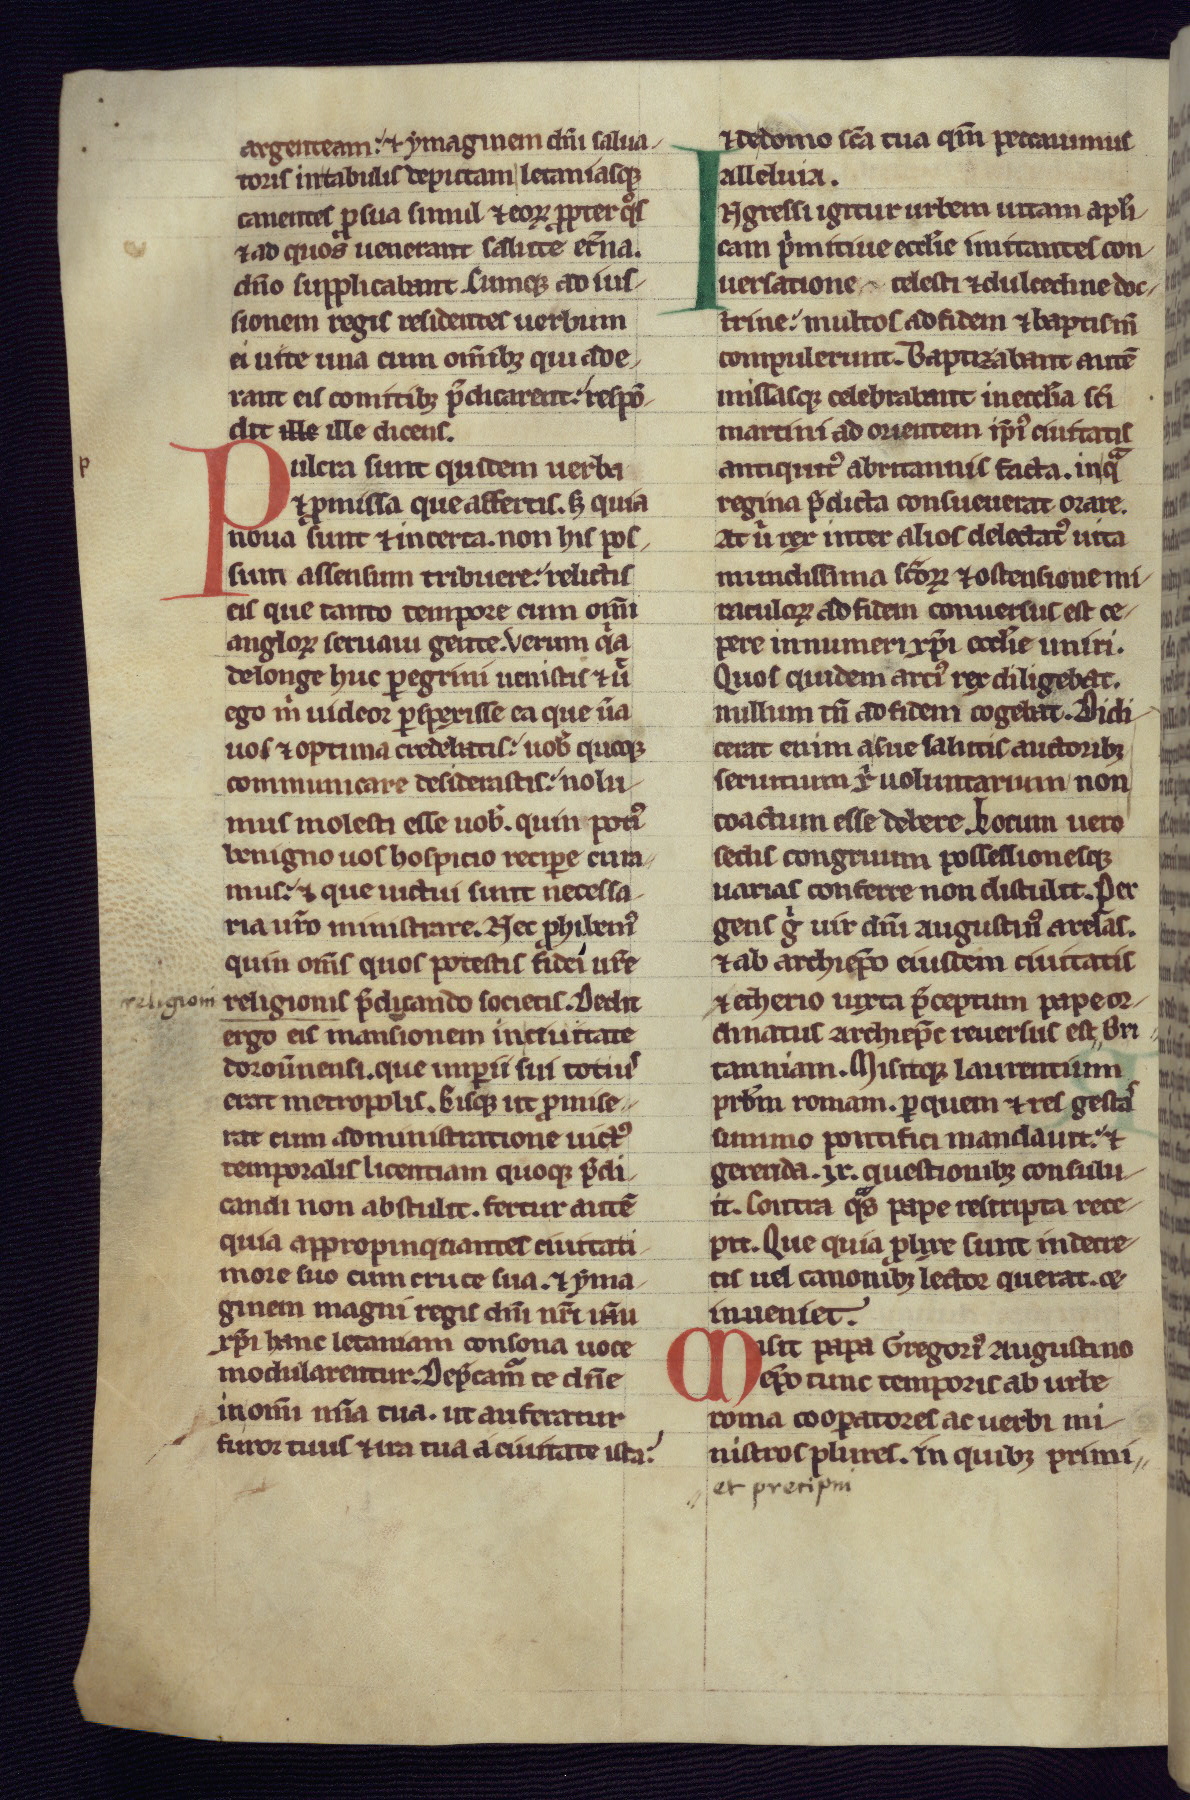 argenteam. ⁊ ymaginem dn̄i salua-
toris in tabulis depictam letaniasq̨
canentes ꝑ sua simul ⁊ eoꝝ ꝓpter q̊s
⁊ ad quos uenerant salute et̄na.
dn̄o supplicabant. Cumq̨ ad ius-
sionem regis residentes uerbum
ei uite una cum om̄ibꝫ qui ade-
rant eis comitibꝫ p̄dicarent. respō-
dit ille ille dicens.
p
Pulcra sunt quidem uerba
⁊ ꝓmissa que affertis. sꝫ quia
noua sunt ⁊ incerta. non his pos-
sum assensum tribuere. relictis
eis que tanto tempore cum om̄i
angloꝝ seruaui gente. Verum qͥa
de longe huc ꝑegrini uenistis ⁊ ut̄
ego m̍ uideor ꝑspexisse ea que u̅a
uos ⁊ optima credebatis. uob̄ quoq̨
communicare desiderastis. nolu-
mus molesti esse uob̄. quin poti᾽
benigno uos hospicio reciꝑe cura-
mus. ⁊ que uictui sunt necessa-
ria ur̄o ministrare. Nec ꝓhibem᾽
quin om̄s quos potestis fidei ur̄e
religioni
religionis p̄dicando societis. Dedit
ergo eis mansionem in ciuitate
dorou̅nensi. que imꝑii sui totius
erat metropolis. Eisq̨ ut ꝓmise-
rat cum administratione uict᾽
temporalis licentiam quoq̨ p̄di
candi non abstulit. fertur autē
quia appropinquantes ciuitati
more suo cum cruce sua. ⁊ yma-
ginem magni regis dn̄i nr̄i ih̄u
xp̄i hanc letaniam consona uoce
modularentur. Dep̄camᷓ te dn̄e
in om̄i mīa tua. ut auferatur
furor tuus ⁊ ira tua a ciuitate ista.
⁊ de domo sc̄a tua qm̄ peccauimus
alleluia.
INgressi igitur urbem uitam apl̄i
cam p̍mitiue eccl̄ie imitantes con-
uersatione celesti ⁊ dulcedine doc-
trine. multos ad fidem ⁊ baptism̄
compulerunt. Baptizabant autē
missasq̨ celebrabant in eccl̄ia sc̄i
martini ad orientem ip̄i᾽ ciuitatis
antiquit᾽ a britannis facta. in qᷓ
regina p̄dicta consueuerat orare.
At u̍ rex inter alios delectat᾽ uita
mundissima sc̄oꝝ ⁊ ostensione mi-
raculoꝝ ad fidem conuersus est ce-
pere innumeri xp̄i eccl̄ie uniri.
Quos quidem arci᾽ rex diligebat.
nullum tn̄ ad fidem cogebat. Didi-
cerat enim a sue salutis auctoribꝫ
seruitium x̍ uoluntarium non
coactum esse debere. Locum uero
sedis congruum possessionesq̨
uarias conferre non distulit. Per
gens g̍ uir dn̄i augustin᾽ arelas.
⁊ ab archiep̄o eiusdem ciuitatis
⁊ etherio iuxta p̄ceptum pape or-
dinatus archiep̄c reuersus est Bri-
tanniam. Misitq̨ laurentium
prb̄m romam. ꝑ quem ⁊ res gestas
summo pontifici mandauit. ⁊
gerenda. ix. questionibꝫ consulu-
it. Contra qᷓs pape rescripta rece-
pit. Que quia ꝓlixe sunt in decre-
tis uel canonibꝫ lector querat. ce
inueniet.
Misit papa Gregori᾽ Augustino
ep̄o tunc temporis ab urbe
roma cooꝑatores ac uerbi mi-
nistros plures. in quibꝫ primi
et precipui